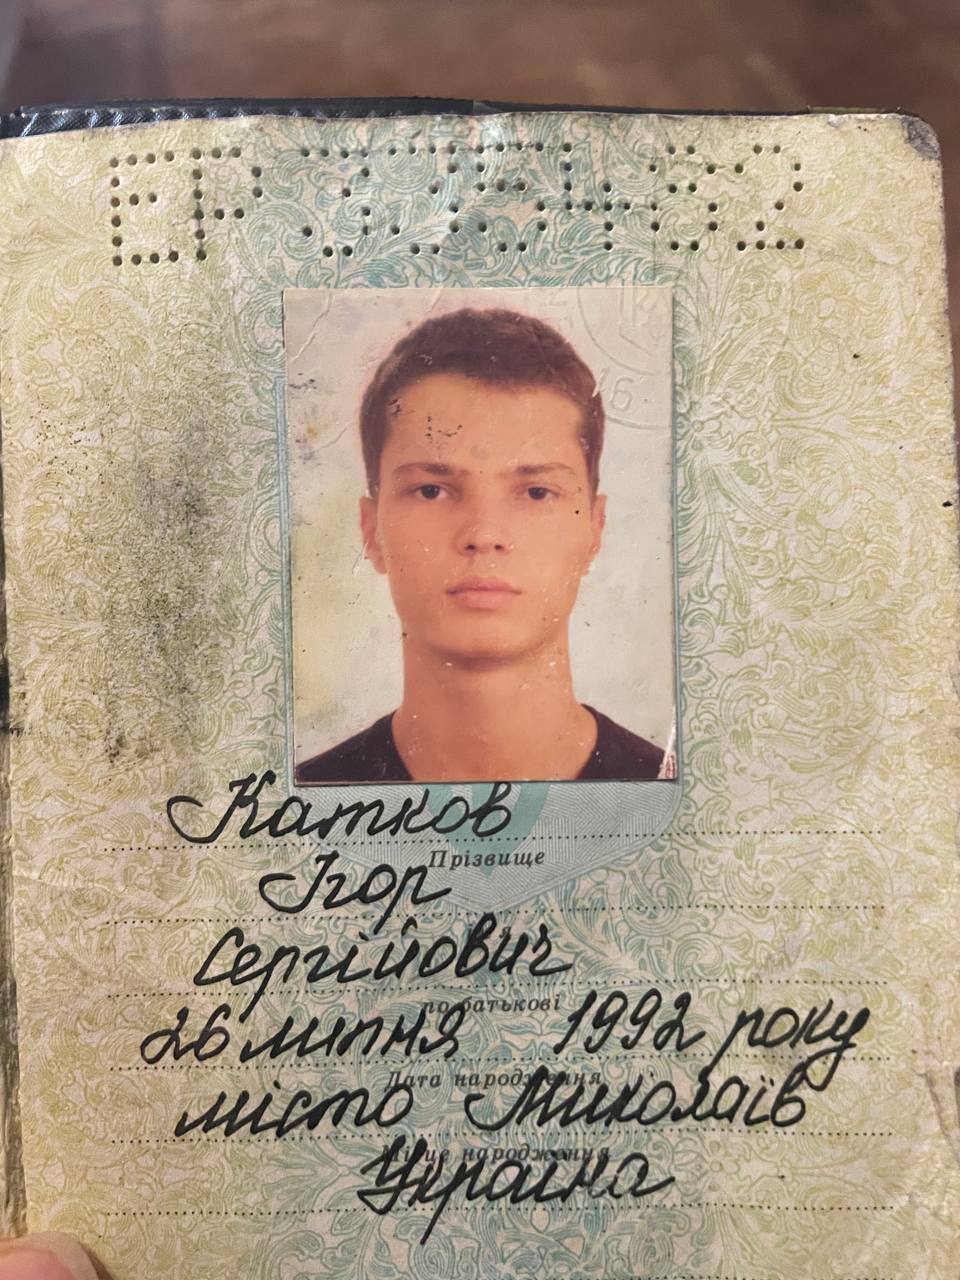 ЕР 335432
Катков
Прізвище
Ігор
Сергійович
по батькові
26 липня 1992 року
Дата народження
місто Миколаїв
Місце народження
Україна